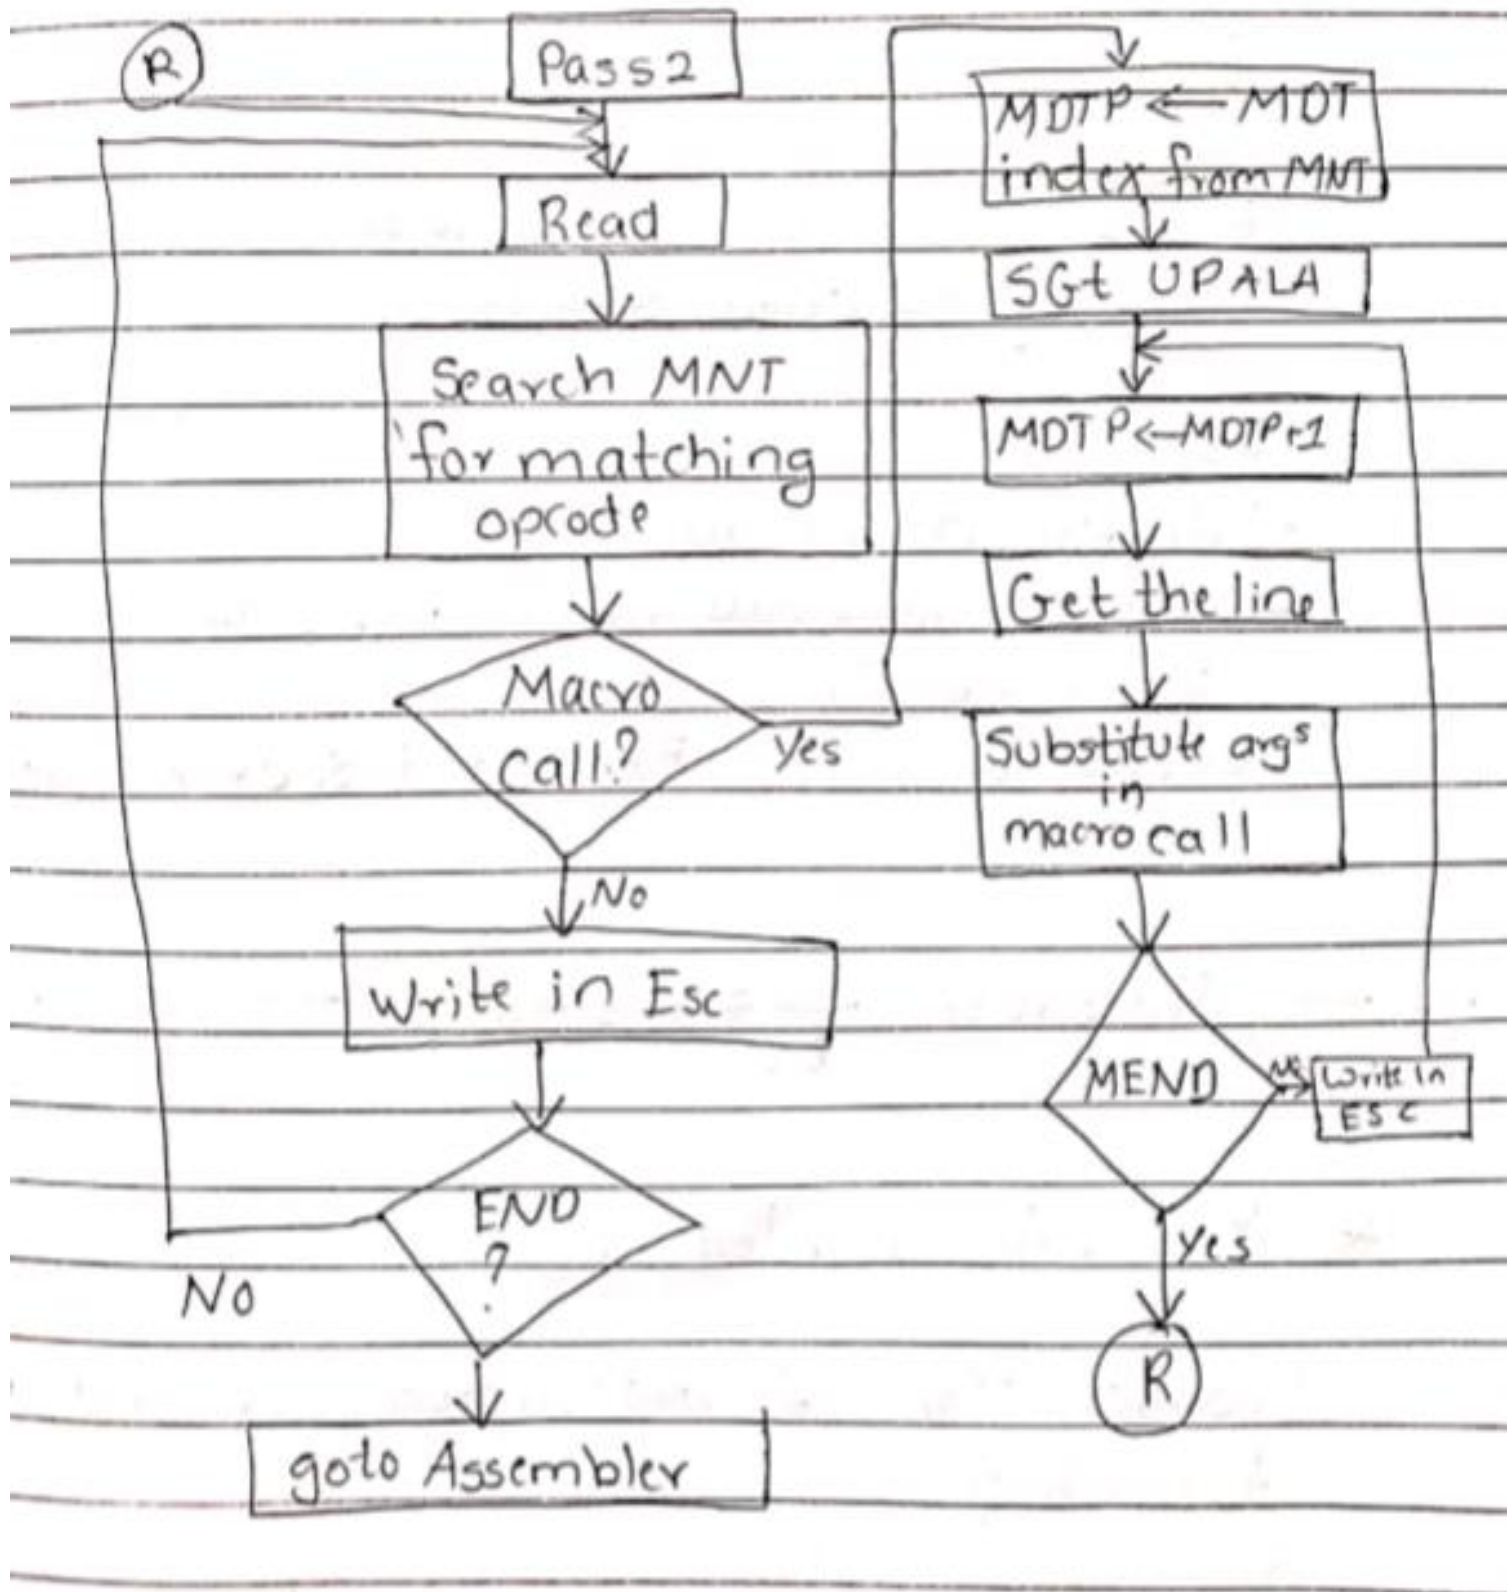 R
Pass2
Read
Search MNT
for matching
opcode
Macro
call?
Yes
No
Write in Esc
END
?
No
goto Assembler
MDTP ← MDT
index from MNT
SGt UPALA
MDTP←MDTP+1
Get the line
Substitute args
in
macro call
MEND
No
Write in
ESC
Yes
R